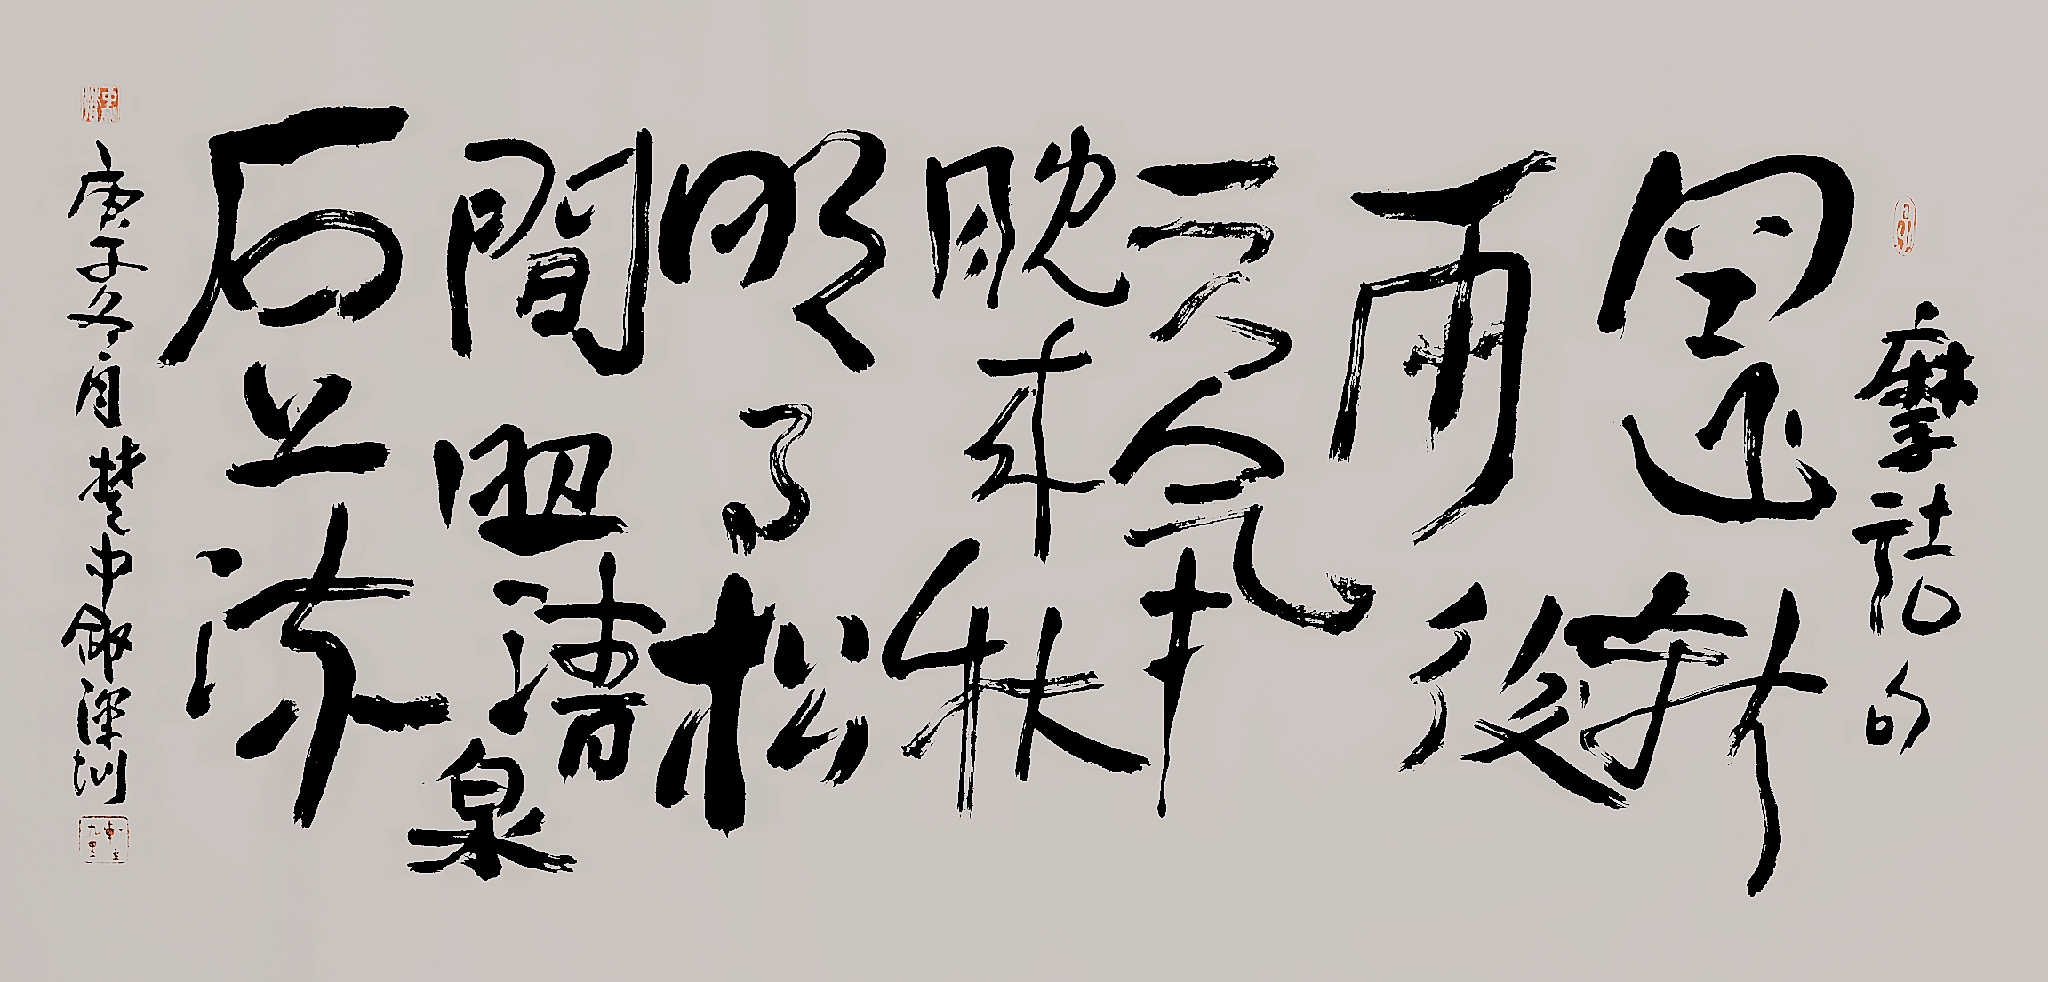 摩詰句
空山新
雨後
天氣
晚来秋
明月松
間照清泉
石上流
庚子冬月楚中深圳